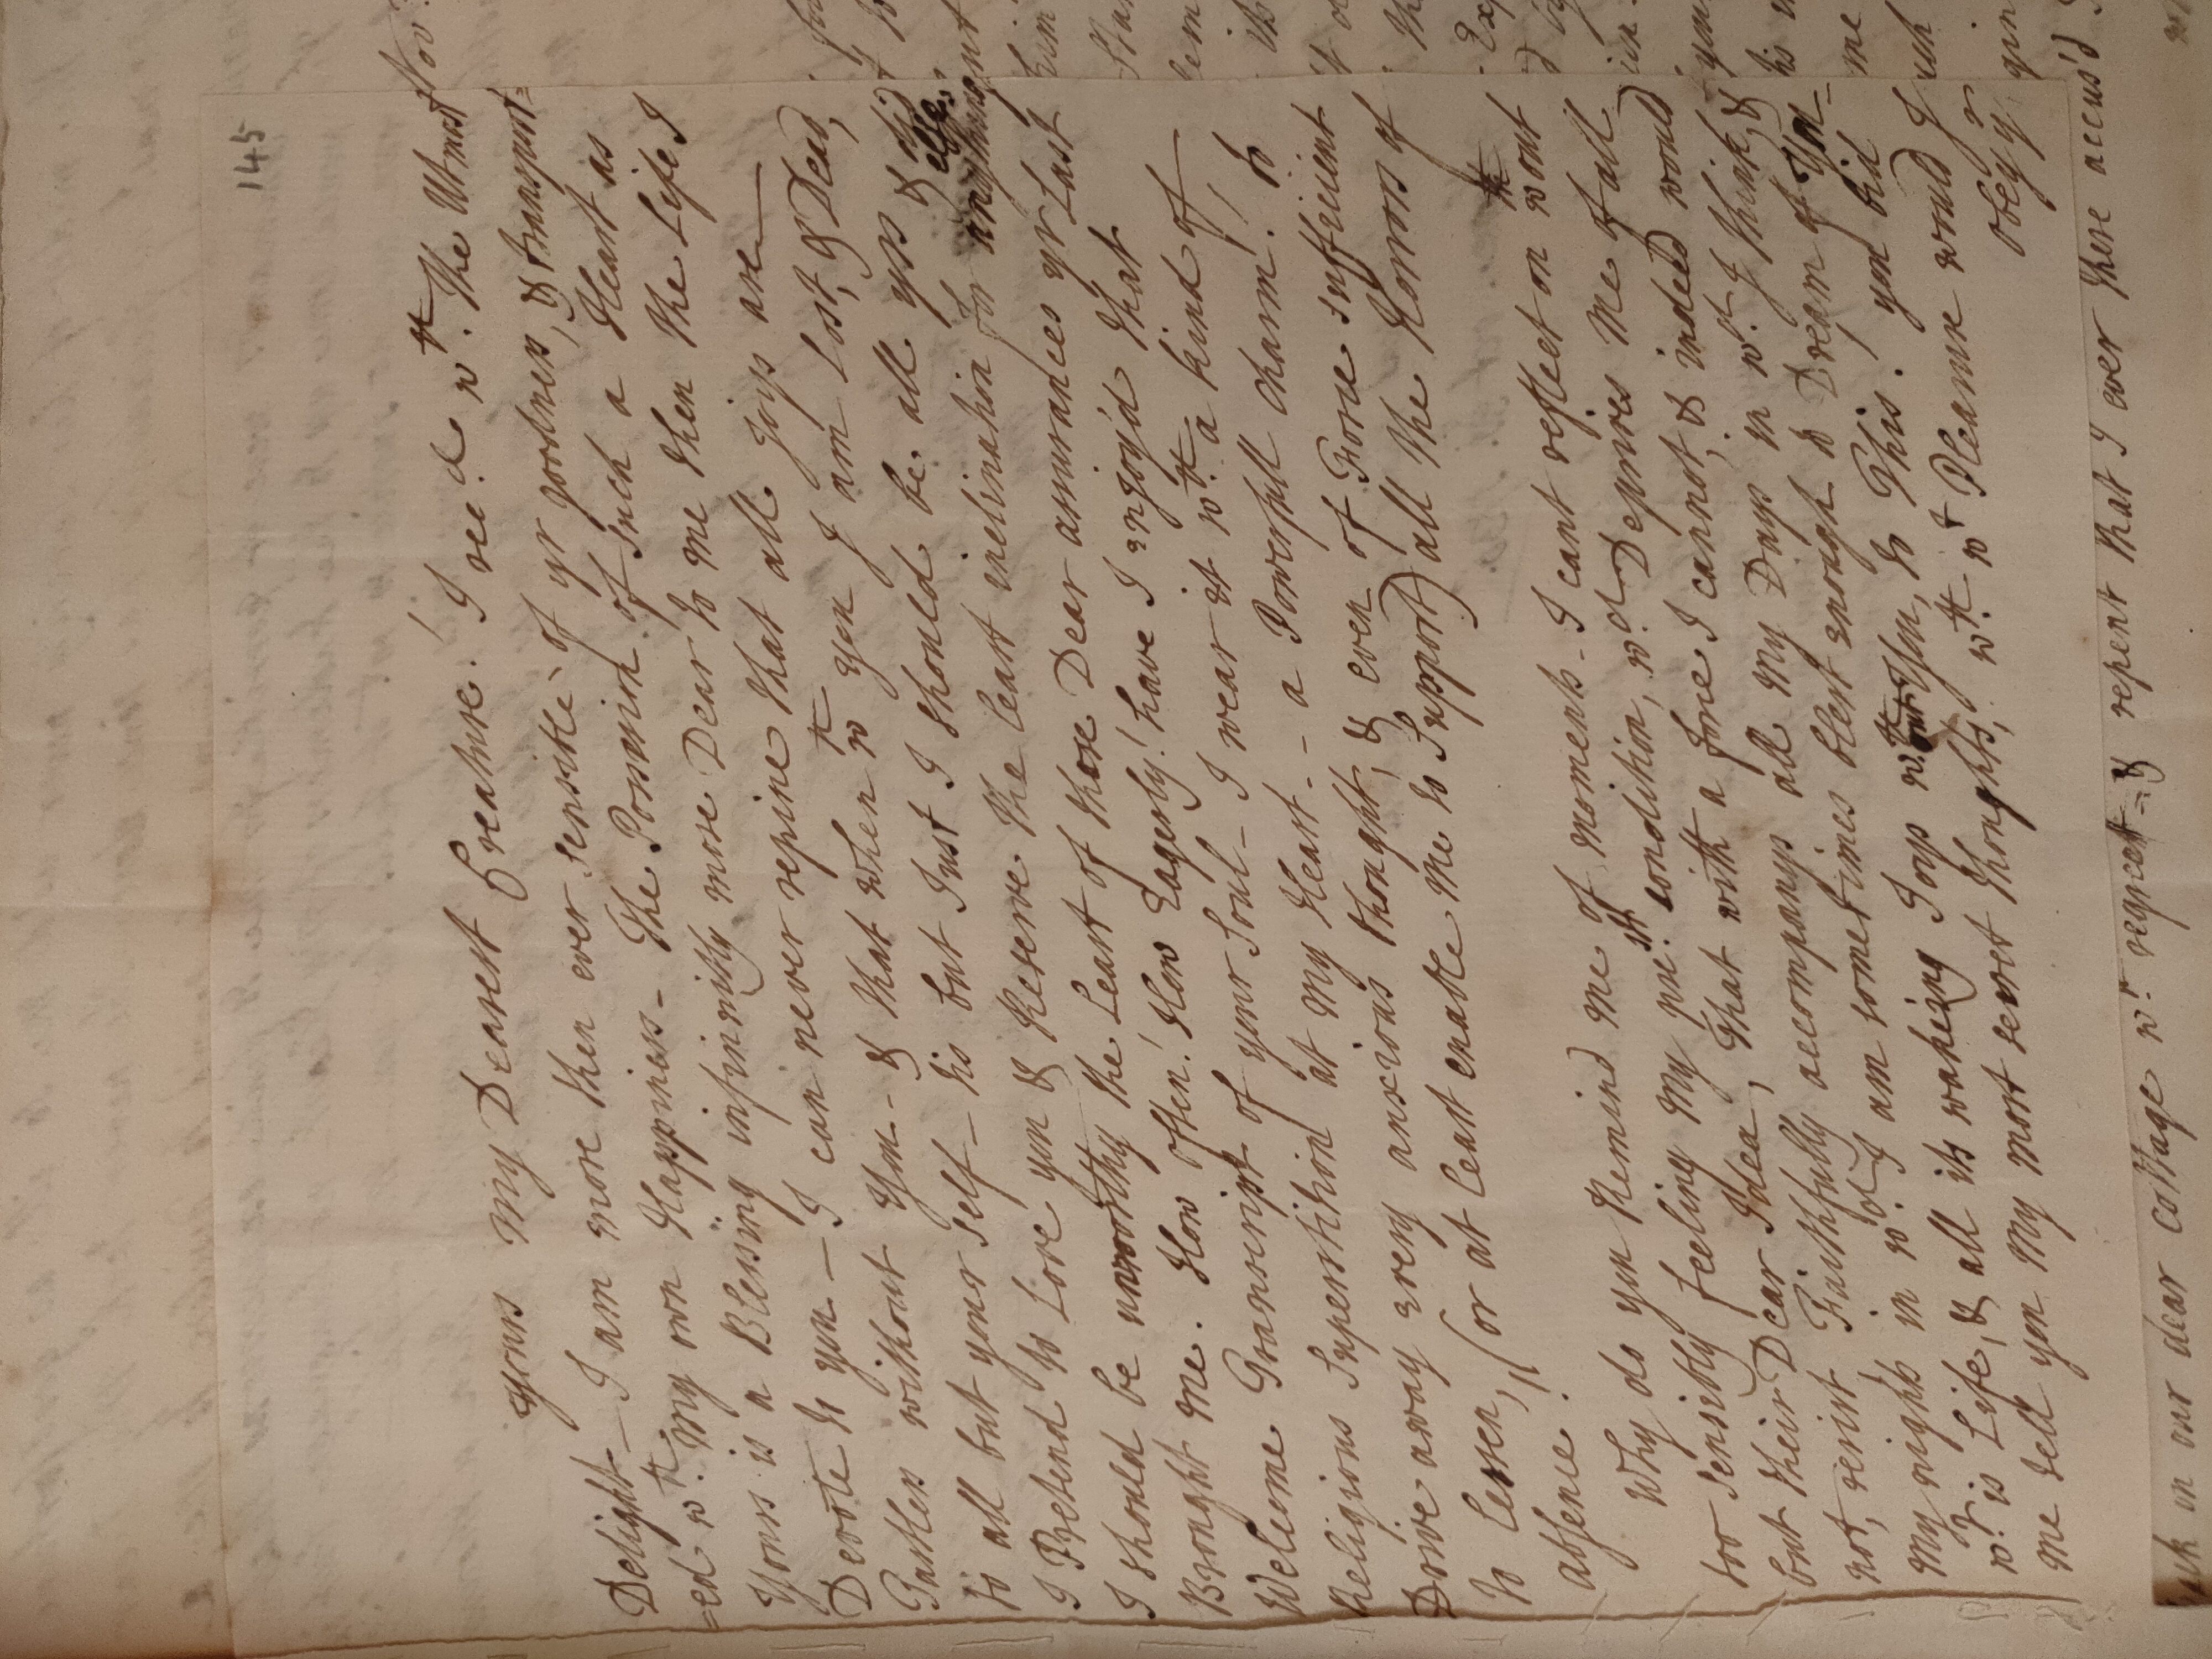 145
yours my Dearest Creature! I recd. wth. the Utmost
Delight_ I am more then ever sensible of yr goodness, & transport=
=ed wth. my own Happiness_ the Possesion of such a Heart as
Yours is a Blessing infinnitly more Dear to me then the Life I
Devote to you _ I can never repine that all joys are
Tastless without You_ & that when wth you I am Lost, & Dead,
to all but your self _ tis but Just I should be all yrs & did
I Pretend to Love you & Reserve the least inclination for anything else,
I should be unworthy the Least of those Dear assurances yr Last
Brought me. How often! How Eagerly! have I enjoy'd that
Welcome Transcript of your Soul_ I wear it wth. a kind of
Religious Superstition at my Heart_ _ a Powerfull charm! to
Drive away every anxious thought, & even of Force sufficient
to lessen, (or at least enable me to Support) all the Horrors of
absence!
Why do you Remind me of moments_ I cant reflect on wthout
too sensibly feeling my presnt. condition, wch. Deprives me of all
but their Dear Idea, that with a force I cannot, & indeed would
not, resist, Faithfully accompanys all my Days in wch. I think, &
my nights in wch. I am sometimes blest enough to Dream of You_
wt. is Life, & all its wakeing Joys wthout You, to This! you bid
me tell you my most secret thoughts, wth. wt Pleasure would I
obey yr
back on our dear cottage wth. regreett = & repent that I ever there accus'd